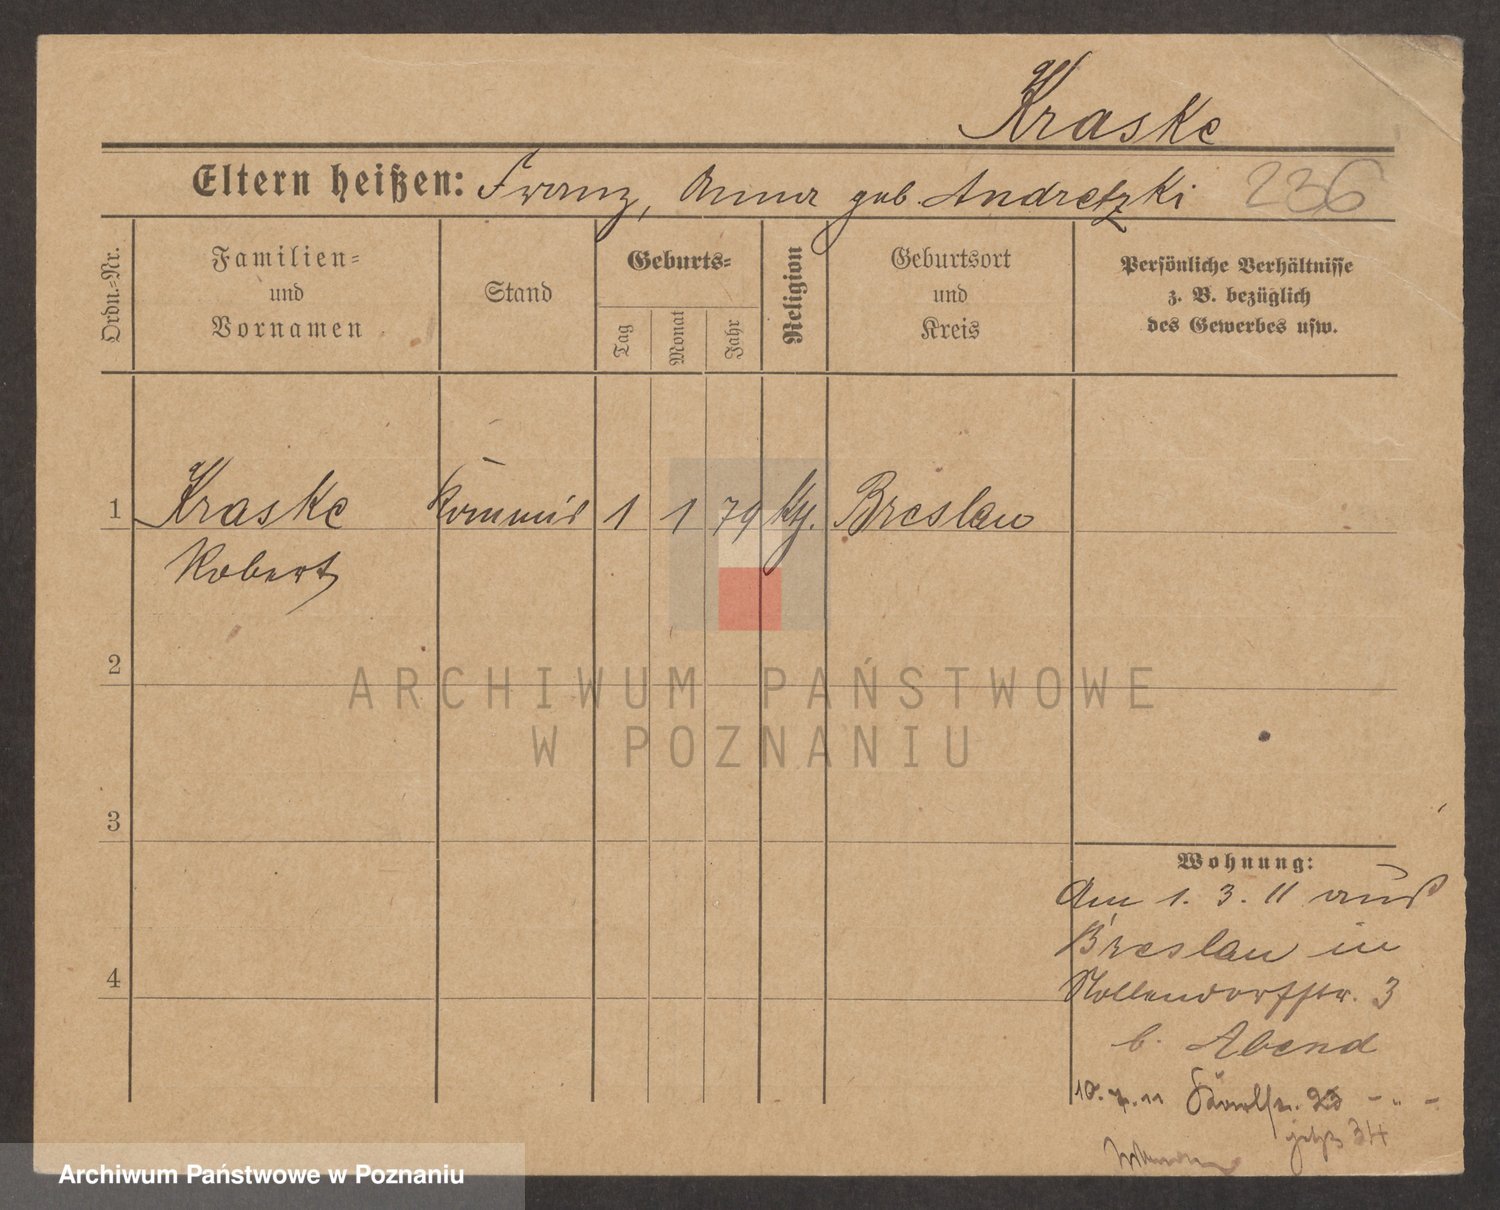 Kraske
Eltern heißen: Franz, Anna geb. Andretzki 236
Ordn.=Nr.
Familien=
und
Vornamen
Stand
Geburts=
Tag
Monat
Jahr
Religion
Geburtsort
und
Kreis
Persönliche Verhältnisse
z. B. bezüglich
des Gewerbes usw.
1 Kraske Kommis 1 1 79 kth. Breslau
Robert
2
ARCHIWUM PAŃSTWOWE
W POZNANIU
3
Wohnung:
Am 1. 3. 11 aus
Breslau in
4
Nollendorfstr. 3
b. Abend
10. 7. 11 23 - " -
34
Archiwum Państwowe w Poznaniu